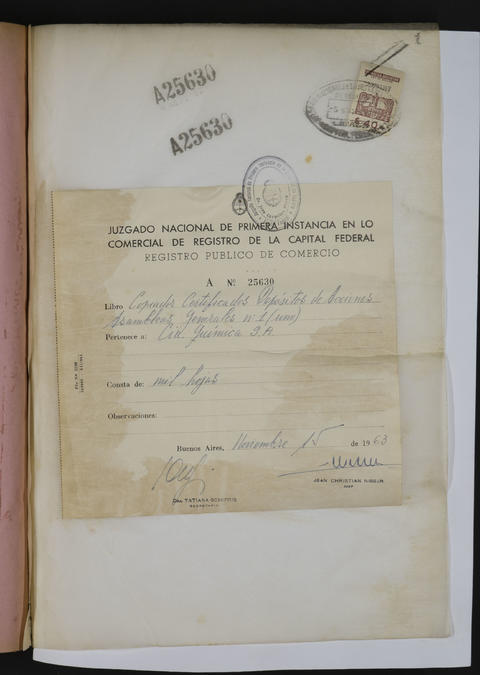 A25630
A25630
JUZGADO NACIONAL DE PRIMERA INSTANCIA EN LO
COMERCIAL DE REGISTRO DE LA CAPITAL FEDERAL
REGISTRO PUBLICO DE COMERCIO
A Nº 25630
Libro Copiador Certificados Depósitos de Acciones
Asambleas Generales nº 1 (uno)
Pertenece a: Química S.A.
Consta de: mil hojas
Observaciones:
Buenos Aires, Noviembre 15 de 1963
JEAN CHRISTIAN NISSEN
Dra. TATIANA
SECRETARIA